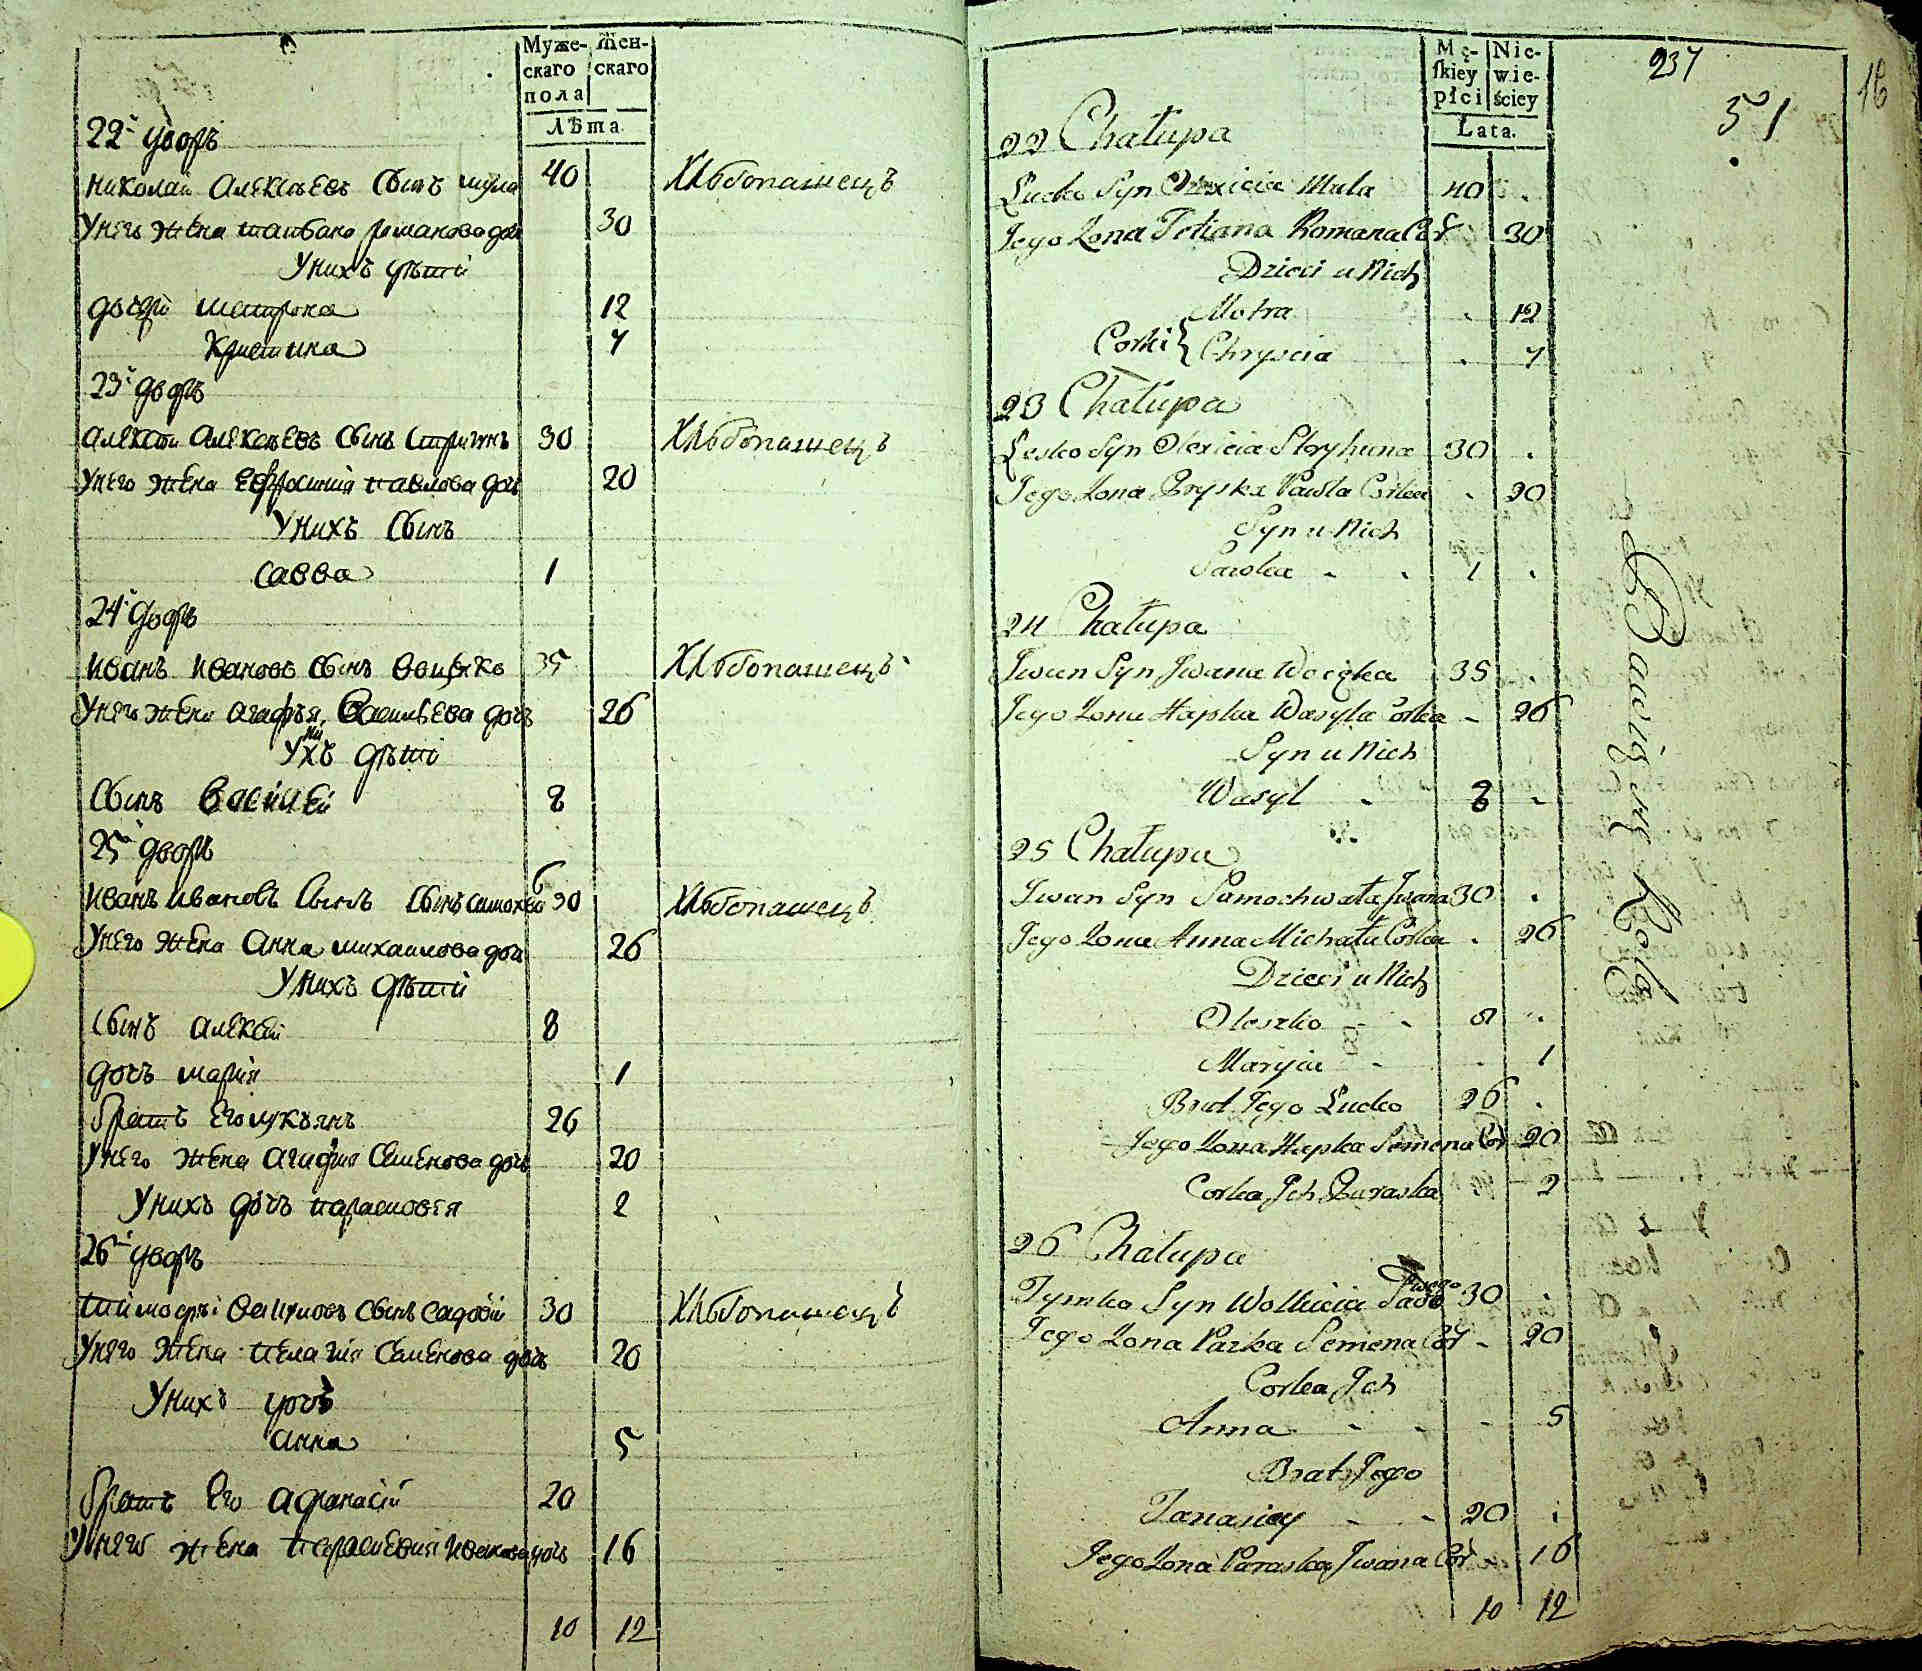 Муже- Жен-
скаго скаго
пола
Лѣта
22й дворъ
Николай Алексѣевъ сынъ Мула 40 Хлѣбопашецъ
У него жена Татьана Романова дочь 30
У нихъ дѣти
дочери Матрона 12
Христина 7
23й дворъ
Алексѣй Алексѣевъ сынъ Стригунъ 30 Хлѣбопашецъ
У него жена Ефросинія Павлова дочь 20
У нихъ сынъ
Савва 1
24й дворъ
Иванъ Ивановъ сынъ 35 Хлѣбопашецъ
У него жена Агафья Васильева дочь 26
У нихъ дѣти
Сынъ Василей 8
25й дворъ
Иванъ Ивановъ сынъ сынъ Самохва 30 Хлѣбопашецъ
У него жена Анна Михаилова дочь 26
У нихъ дѣти
Сынъ Алексѣй 8
дочь Марія 1
братъ его Лукьянъ 26
У него жена Агафия Семенова дочь 20
У нихъ дочь Парасковія 2
26й дворъ
Тимофѣй сынъ Садовій 30 Хлѣбопашецъ
У него жена Пелагія Семенова дочь 20
У нихъ дочь
Анна 5
братъ его Афанасій 20
У него жена Парасковия Иванова дочь 16
10 12
Mę- Nie-
skiey wie-
płci ściey
Lata.
237
16
51
22 Chałupa
Łucko Syn Olexieia Mula 40 .
Jego Zona Tetiana Romana Cór 30
Dzieci u Nich
Motra . 12
Corki { Chryscia . 7
23 Chałupa
Lesko Syn Olexieia Stryhuna 30 .
Jego Zona Pryska Pawla Corka . 20
Syn u Nich
Sawka . . 1 .
24 Chałupa
Jwan Syn Jwana 35 .
Jego Zona Hapka Wasyla Corka - 26
Syn u Nich
Wasyl . 8 .
25 Chałupa
Jwan Syn Samochwała Jwana 30 .
Jego Zona Anna Michała Corka . 26
Dzieci u Nich
Oleszko - . 8 .
Maryia - . 1
Brat Jego Łucko 26 .
Jego Zona Hapka Semena Cór 20
Corka Jch Paraska 2
26 Chałupa
Tymko Syn 30 .
Jego Zona Semena Cór - 20
Corka Jch
Anna - - - 5
Brat Jego
Tanasiey - - 20 .
Jego Zona Paraska Jwana Cór - 16
10 12